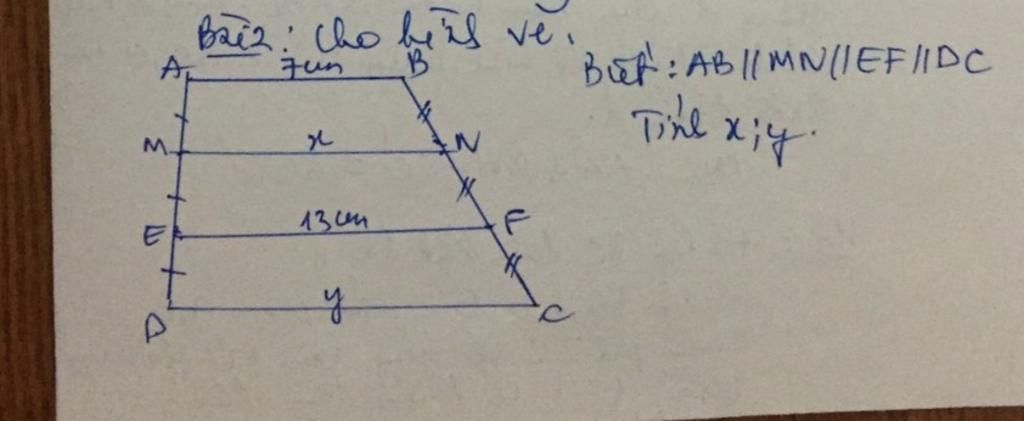 Bài 2: Cho hình vẽ.
A 7cm B
Biết: AB//MN//EF//DC
Tính x; y.
M x N
E 13cm F
D y C